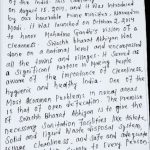 of the India. This campaign
on August 15, 2014, and it was introduced
by our honourable Prime minister. Narendra
Modi launched it on October 2, 2014
to honor Mahatma Gandhi's vision of a
Cleanness. Swachh Bharat Abhiyan was
done on a national level and encompassed
all the towns and villages. It served as
a significant purpose in making people
aware of the importance of cleanness,
hygienic and healthy India. One of the
Most common problems in rural areas
is that of open defecation. The
of Swachh Bharat Abhiyan is to give the
necessary Sanitation facilities like toilets,
Solid and liquid Waste disposal Systems,
village Cleanliness, and safe and adequate